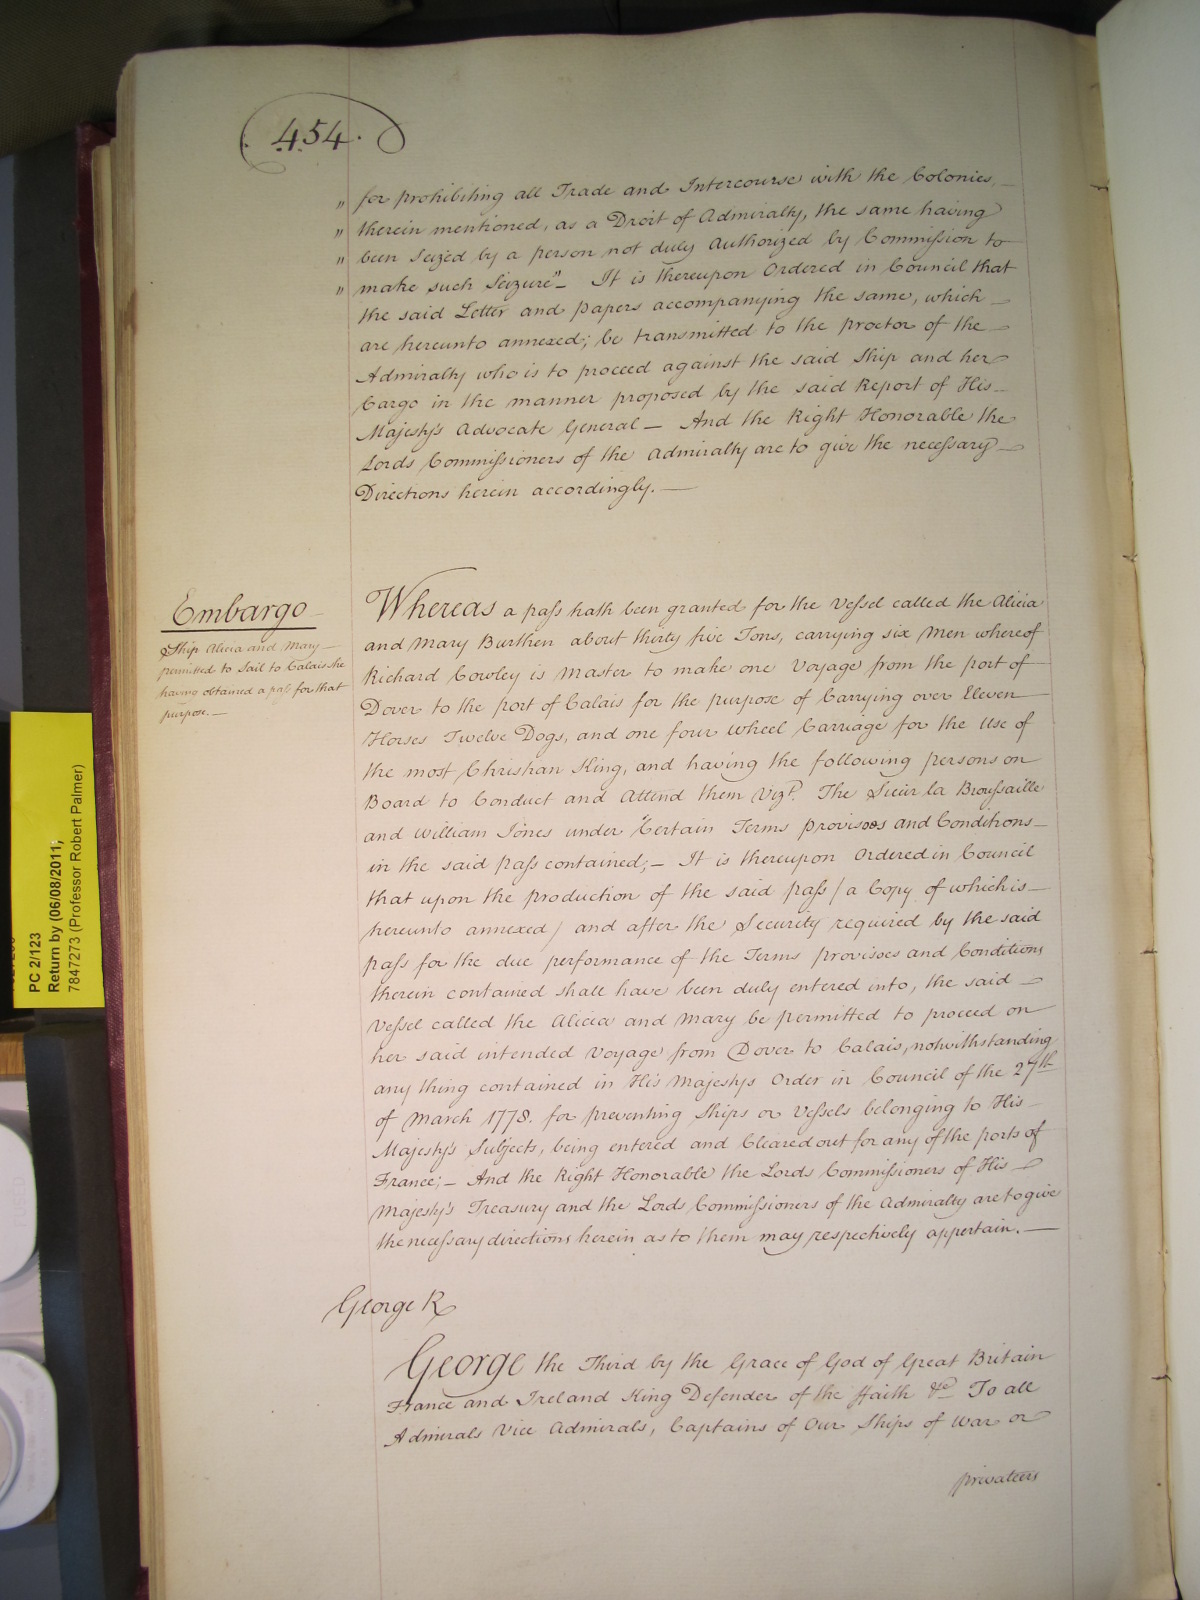 .454.
" for prohibiting all Trade and Intercourse with the Colonies,
" therein mentioned, as a Droit of Admiralty, the same having
" been Seized by a person not duly Authorized by Commission to
" make such Seizure"— It is thereupon Ordered in Council that
the said Letter and papers accompanying the same, which —
are hereunto annexed; be transmitted to the proctor of the —
Admiralty who is to proceed against the said Ship and her
Cargo in the manner proposed by the said Report of His —
Majesty's Advocate General — And the Right Honorable the
Lords Commissioners of the Admiralty are to give the necessary —
Directions herein accordingly. —
Embargo
Ship Alicia and Mary —
permitted to Sail to Calais she
having obtained a pass for that
purpose. —
Whereas a pass hath been granted for the Vessel called the Alicia
and Mary Burthen about thirty five Tons, carrying six Men whereof
Richard Cowley is Master to make one Voyage from the port of
Dover to the port of Calais for the purpose of Carrying over Eleven
Horses Twelve Dogs, and one four wheel Carriage for the Use of
the most Christian King, and having the following persons on
Board to Conduct and Attend them Vizt. The Sieur la Broussaille
and William Jones under Certain Terms provisoes and Conditions —
in the said pass contained; — It is thereupon Ordered in Council
that upon the production of the said pass / a Copy of which is —
hereunto annexed / and after the Security required by the said
pass for the due performance of the Terms provisoes and Conditions
therein contained shall have been duly entered into, the said —
Vessel called the Alicia and Mary be permitted to proceed on
her said intended Voyage from Dover to Calais, notwithstanding
any thing contained in His Majestys Order in Council of the 27th
of March 1778. for preventing Ships or Vessels belonging to His
Majesty's Subjects, being entered and Cleared out for any of the ports of
France; — And the Right Honorable the Lords Commissioners of His —
Majesty's Treasury and the Lords Commissioners of the Admiralty are to give
the necessary directions herein as to them may respectively appertain. —
George R
George the Third by the Grace of God of Great Britain
France and Ireland King Defender of the ffaith &ca To all
Admirals Vice Admirals, Captains of Our Ships of War or
privateers
PC 2/123
Return by (06/08/2011;
7847273 (Professor Robert Palmer)